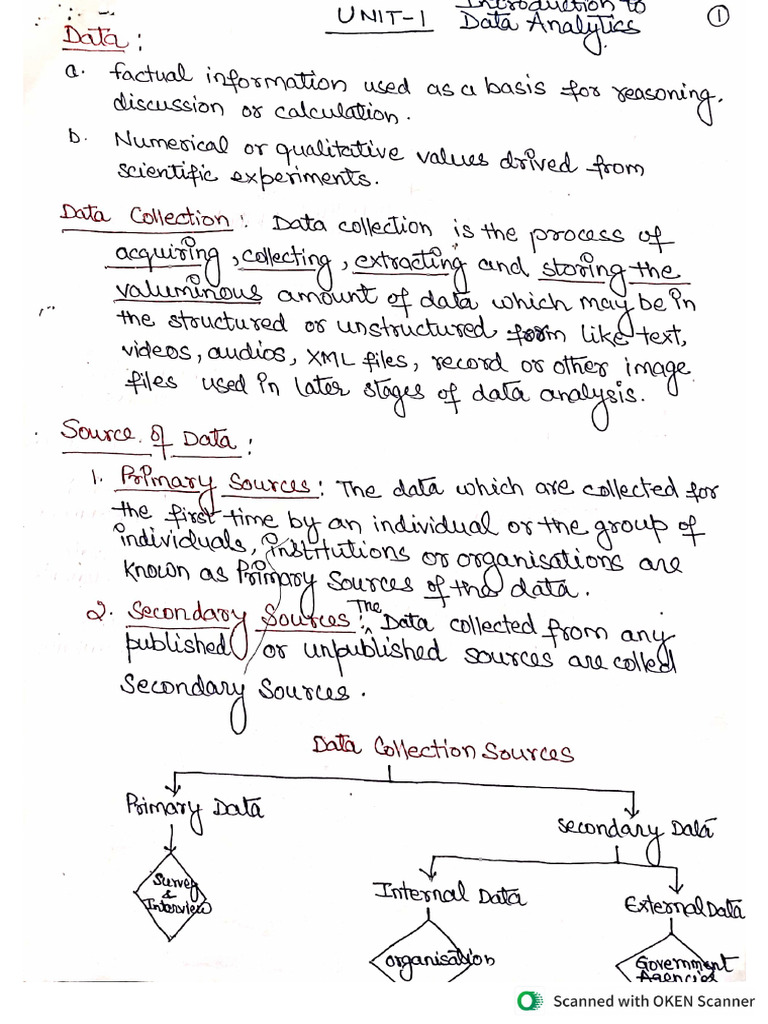 UNIT-1 Introduction to
Data Analytics.
1
Data:
a. factual information used as a basis for reasoning,
discussion or calculation.
b. Numerical or qualitative values drived from
scientific experiments.
Data Collection: Data collection is the process of
acquiring, collecting, extracting and storing the
valuminous amount of data which may be in
the structured or unstructured form like text,
videos, audios, XML files, record or other image
files used in later stages of data analysis.
Source of Data:
1. Primary Sources: The data which are collected for
the first time by an individual or the group of
individuals, institutions or organisations are
known as Primary Sources of the data.
2. Secondary Sources: The Data collected from any
published or unpublished sources are called
Secondary Sources.
Data Collection Sources
Primary Data
Secondary Data
Survey
&
Interview
Internal Data
External Data
Organisation
Government
Agencies
Scanned with OKEN Scanner